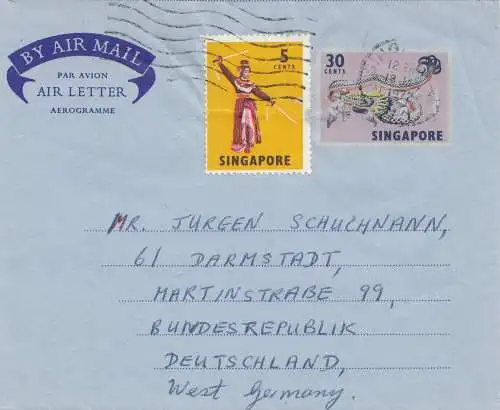 BY AIR MAIL
PAR AVION
AIR LETTER
AEROGRAMME
5
CENTS
SINGAPORE
30
CENTS
SINGAPORE
MR. JURGEN SCHUCHNANN,
61 DARMSTADT,
MARTINSTRAßE 99,
BUNDESREPUBLIK
DEUTSCHLAND,
West Germany.